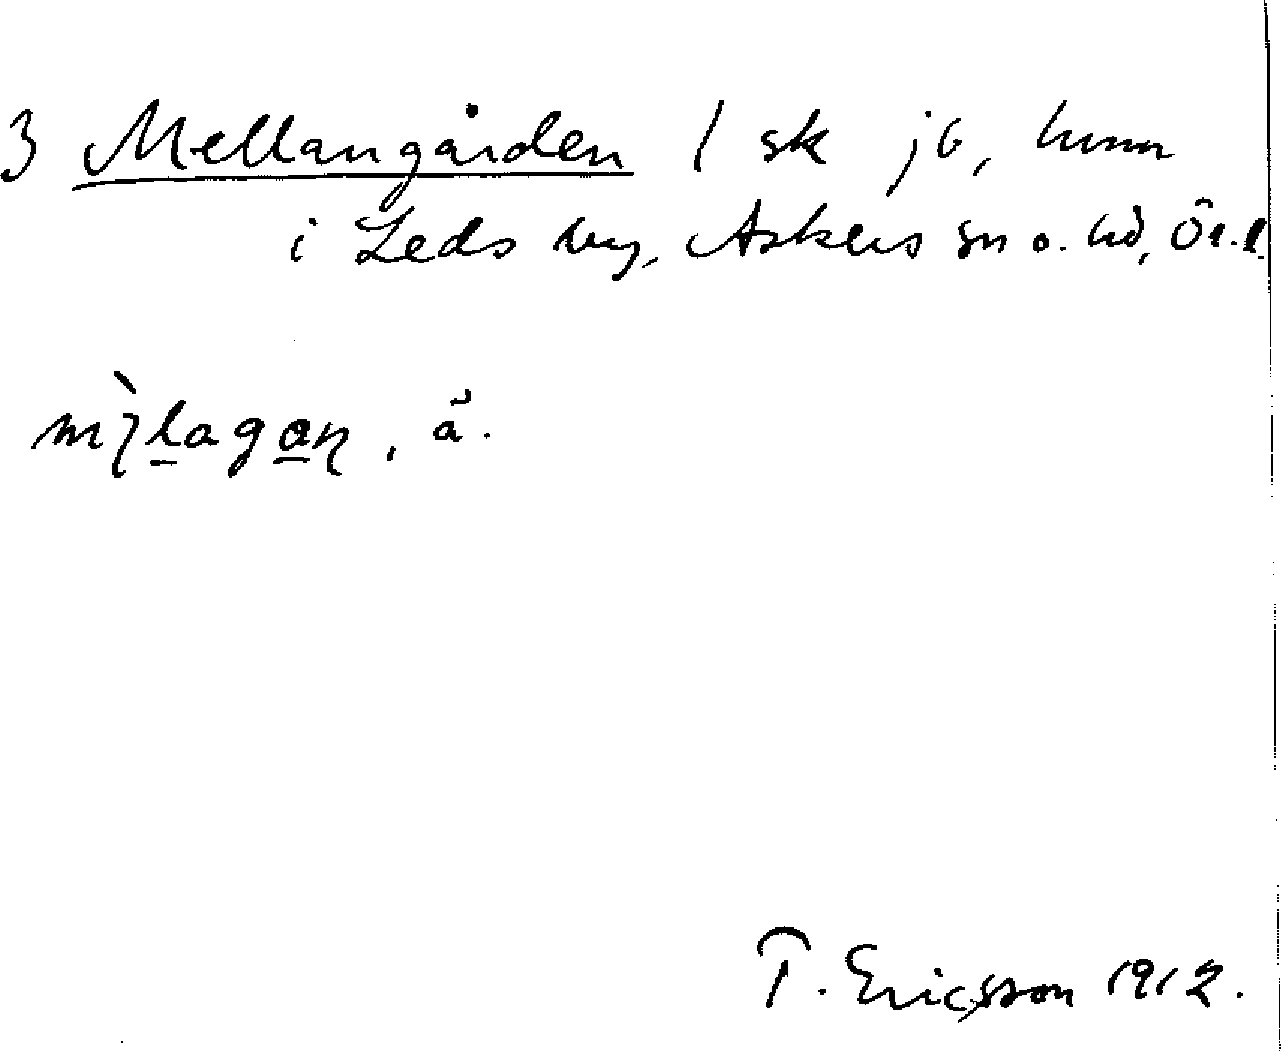 3 Mellangården 1 sk jb, hmn
i Leds by, Askers sn o. hd, Ör.l.
, ä.
T. Ericsson 1912.